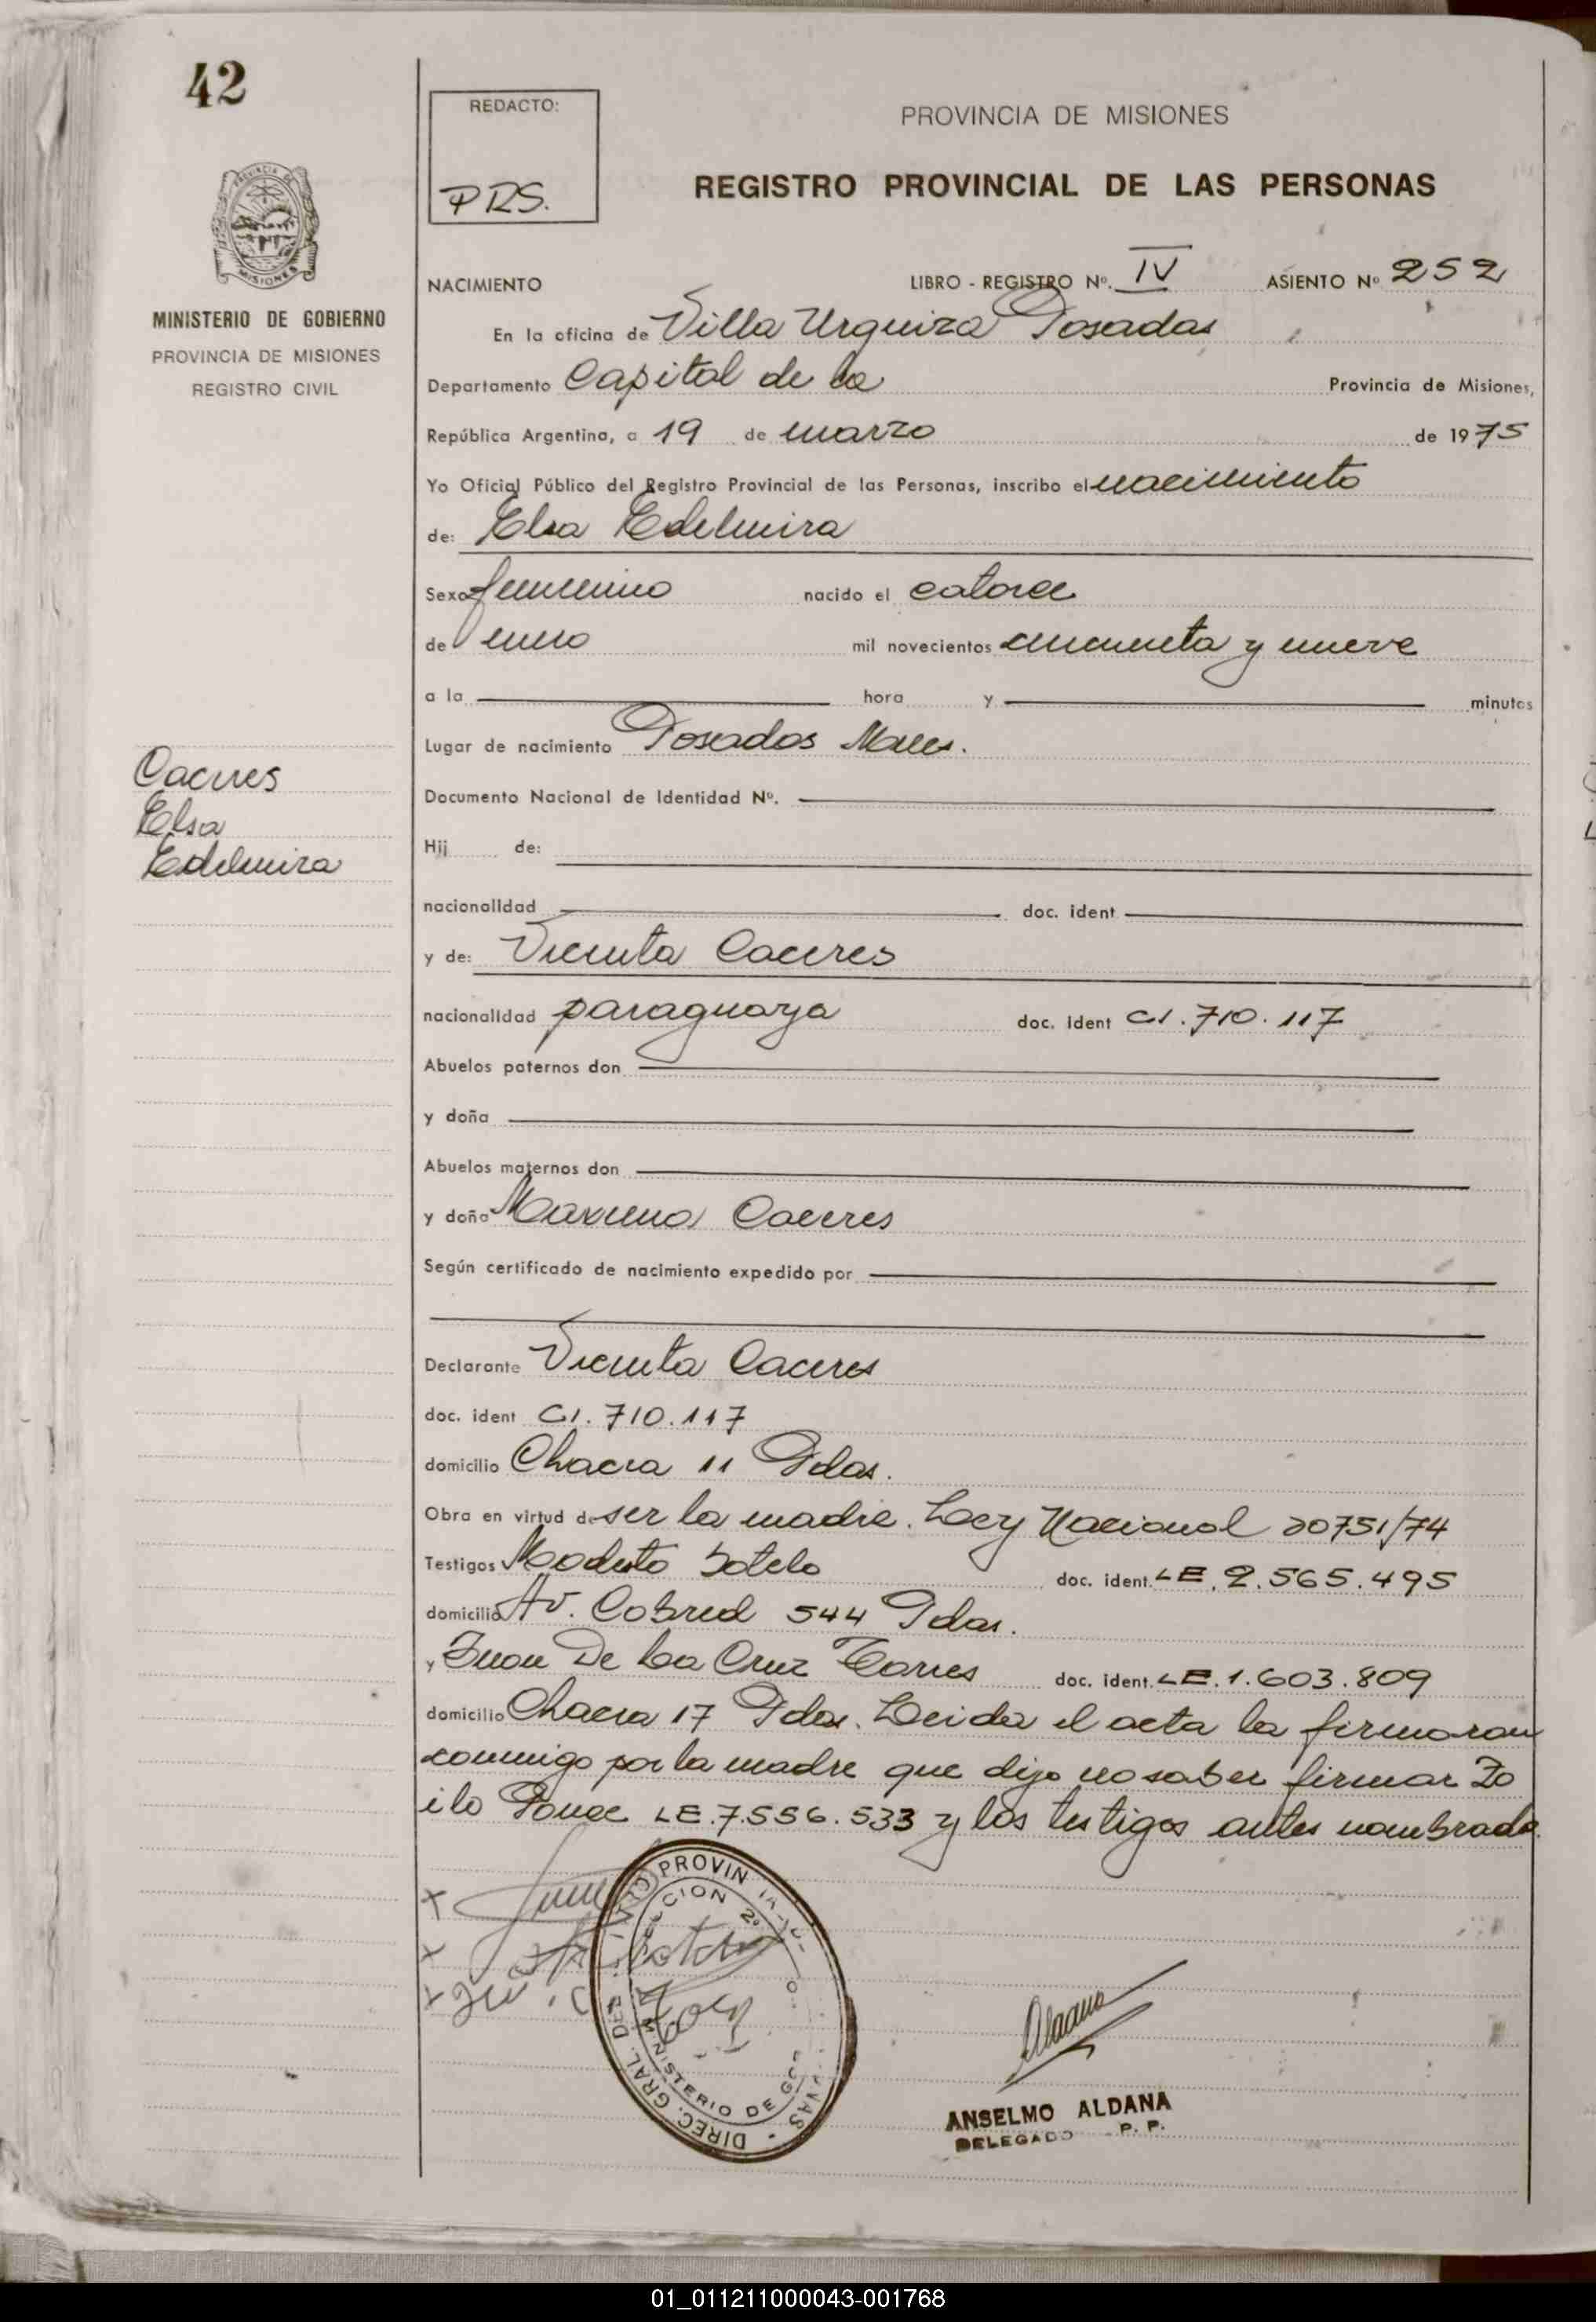 42
REDACTO:
PRS.
PROVINCIA DE MISIONES
REGISTRO PROVINCIAL DE LAS PERSONAS
MISIONES
MINISTERIO DE GOBIERNO
PROVINCIA DE MISIONES
REGISTRO CIVIL
NACIMIENTO LIBRO - REGISTRO Nº. IV ASIENTO Nº 252
En la oficina de Villa Urquiza Posadas
Departamento Capital de la Provincia de Misiones,
República Argentina, a 19 de marzo de 1975
Yo Oficial Público del Registro Provincial de las Personas, inscribo el nacimiento
de: Elsa Edelmira
Sexo femenino nacido el catorce
de enero mil novecientos cincuenta y nueve
a la hora y minutos
Lugar de nacimiento Posadas Mnes.
Caceres
Elsa
Edelmira
Documento Nacional de Identidad Nº.
Hij de:
nacionalidad doc. ident
y de: Vicenta Caceres
nacionalidad paraguaya doc. ident CI. 710.117
Abuelos paternos don
y doña
Abuelos maternos don
y doña Maxima Caceres
Según certificado de nacimiento expedido por
Declarante Vicenta Caceres
doc. ident CI. 710.117
domicilio Chacra 11 Pdas.
Obra en virtud de ser la madre. Ley Nacional 20751/74
Testigos Modesto Sotelo doc. ident. LE. 2.565.495
domicilio Av. Cabred 544 Pdas.
y Juan De La Cruz Torres doc. ident. LE. 1.603.809
domicilio Chacra 17 Pdas. Leida el acta la firmaron
conmigo por la madre que dijo no saber firmar Zo
ilo Ponce LE. 7.556.533 y los testigos antes nombrado
PROVIN
SECCION 2º
MINISTERIO DE GO
DIREC. GRAL. DEL
Aldana
ANSELMO ALDANA
DELEGADO P. P.
01_011211000043-001768